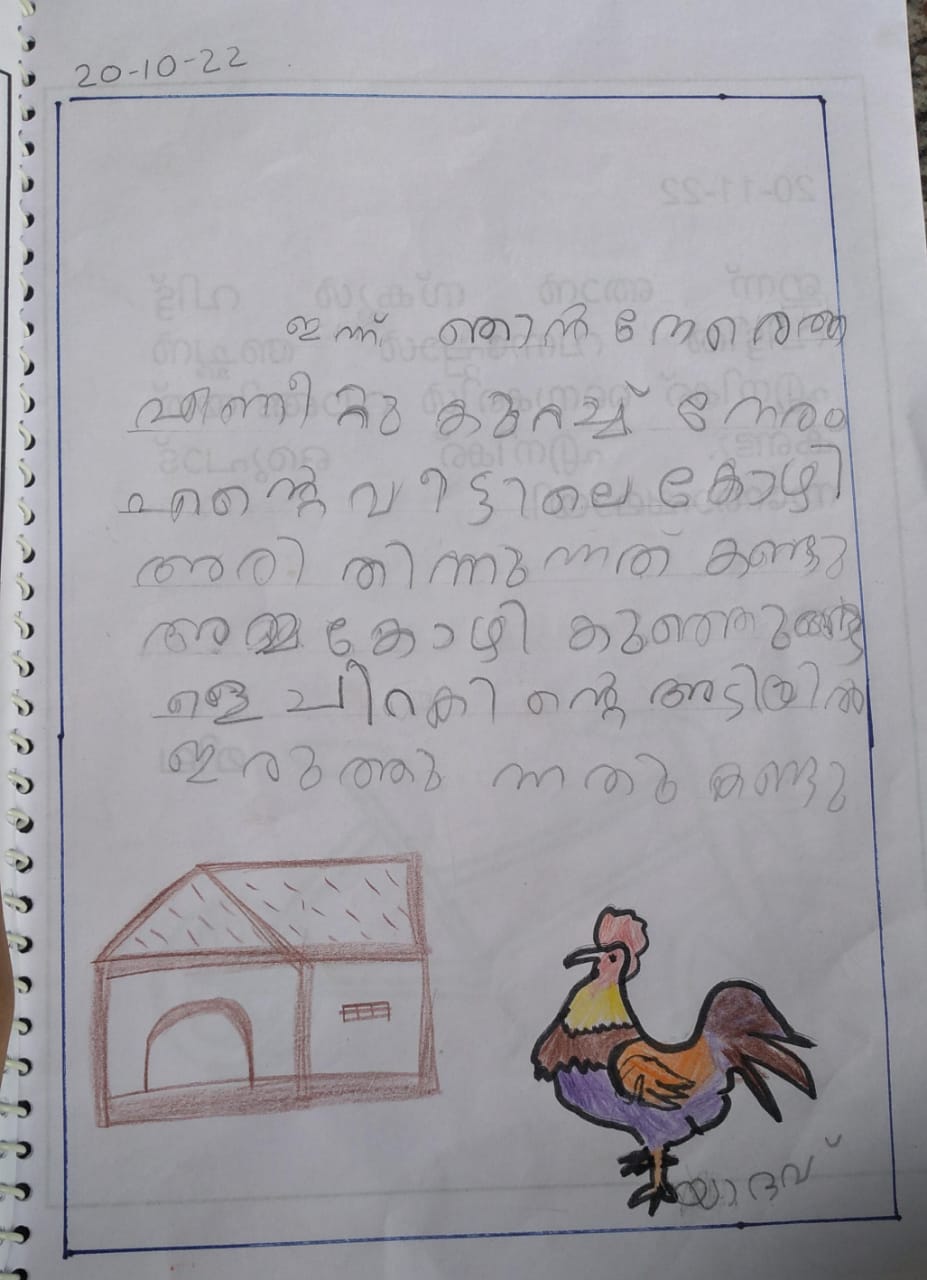 20-10-22
ഇന്ന് ഞാൻ നേരെത്ത
എണീറ്റു കുറച്ച് നേരം
എന്റെ വീട്ടിലെ കോഴി
അരി തിന്നുന്നത് കണ്ടു
അമ്മകോഴി കുഞ്ഞുങ്ങ
ളെ ചിറകിന്റെ അടിയിൽ
ഇരുത്തുന്നതു കണ്ടു
യാദവ്